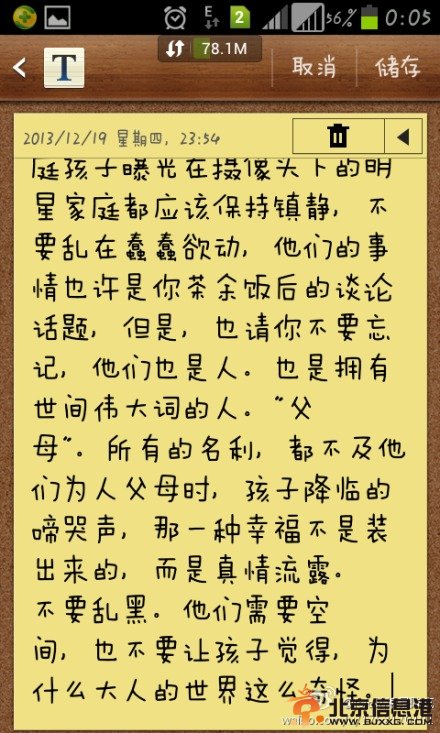 E
2
56%
0:05
78.1M
T
取消
储存
2013/12/19 星期四, 23:54
庭孩子曝光在摄像头下的明
星家庭都应该保持镇静，不
要乱在蠢蠢欲动，他们的事
情也许是你茶余饭后的谈论
话题，但是，也请你不要忘
记，他们也是人。也是拥有
世间伟大词的人。“父
母”。所有的名利，都不及他
们为人父母时，孩子降临的
啼哭声，那一种幸福不是装
出来的，而是真情流露。
不要乱黑。他们需要空
间，也不要让孩子觉得，为
什么大人的世界这么奇怪。
北京信息港
WWW.BJXXG.COM